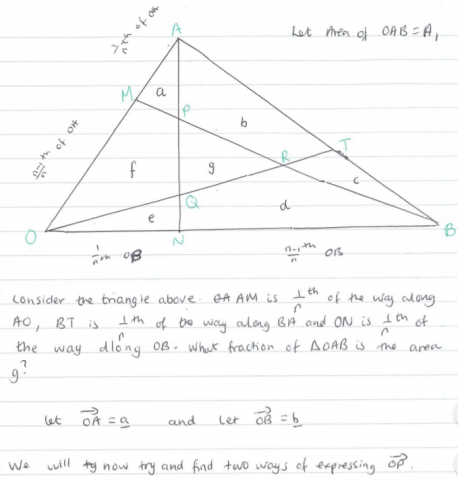 Let Area of OAB = A,
1/n th of OA
A
M
a
P
b
n-1/n th of OA
T
f
g
R
c
Q
d
e
O
N
B
1/n th OB
n-1/n th OB
Consider the triangle above. AM is 1/n th of the way along
AO, BT is 1/n th of the way along BA and ON is 1/n th of
the way along OB. What fraction of ΔOAB is the area
g?
Let OA = a and Let OB = b
We will now try and find two ways of expressing OP.